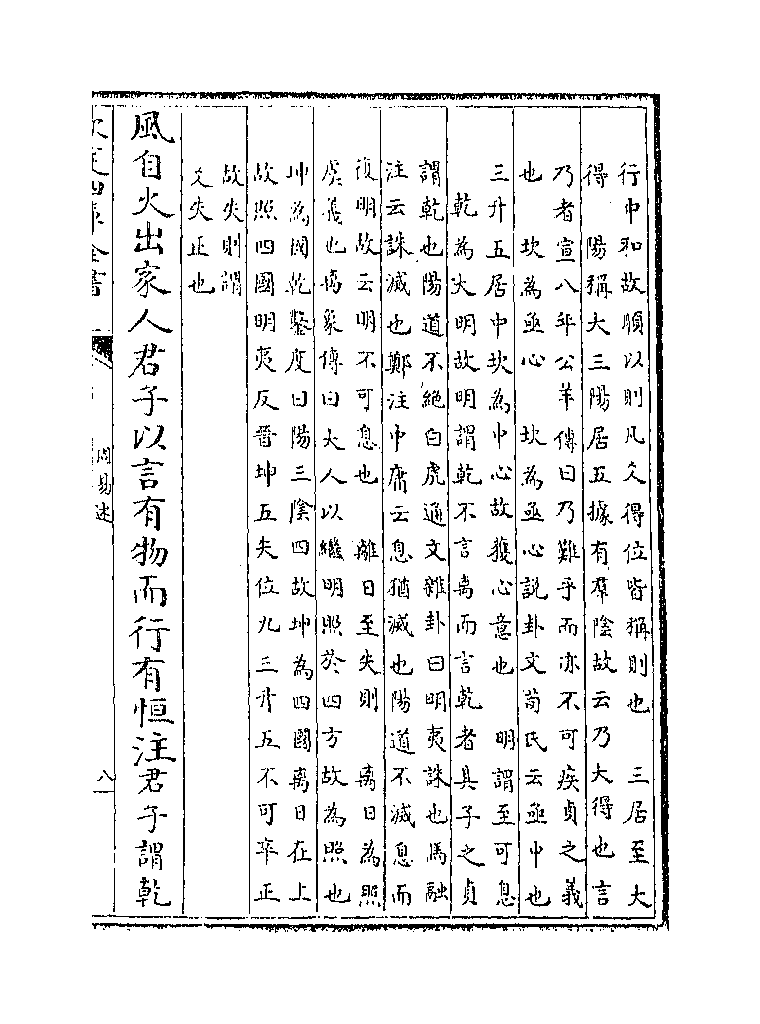 行中和故順以則凡爻得位皆稱則也　三居至大
得　陽稱大三陽居五據有羣陰故云乃大得也言
乃者宣八年公羊傳曰乃難乎而亦不可疾貞之義
也　坎為亟心　坎為亟心說卦文荀氏云亟中也
三升五居中坎為中心故獲心意也　明謂至可息
乾為大明故明謂乾不言离而言乾者具子之貞
謂乾也陽道不絕白虎通文雜卦曰明夷誅也馬融
注云誅滅也鄭注中庸云息猶滅也陽道不滅息而
復明故云明不可息也　離日至失則　离日為照
虞義也离象傳曰大人以繼明照於四方故為照也
坤為國乾鑿度曰陽三陰四故坤為四國离日在上
故照四國明夷反晉坤五失位九三升五不可卒正
故失則謂
爻失正也
風自火出家人君子以言有物而行有恒注君子謂乾
欽定四庫全書
周易述